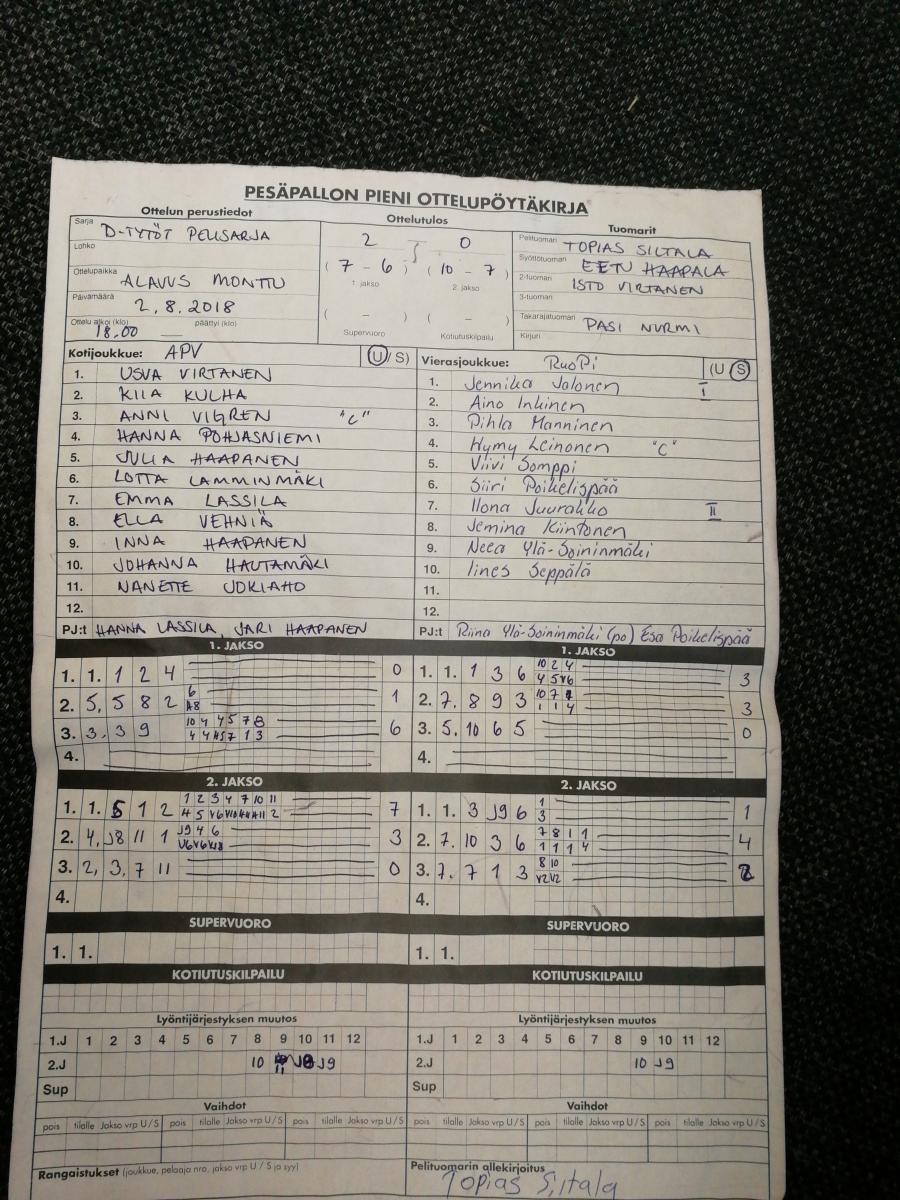 PESÄPALLON PIENI OTTELUPÖYTÄKIRJA
Ottelun perustiedot
Ottelutulos
Tuomarit
Sarja D-TYTÖT PELISARJA
Lohko
Ottelupaikka ALAVUS MONTTU
Päivämäärä 2.8.2018
Ottelu alkoi (klo) 18.00 päättyi (klo)
2 – 0
( 7 – 6 ) ( 10 – 7 )
1. jakso 2. jakso
( – ) ( – )
Supervuoro Kotiutuskilpailu
Pelituomari TOPIAS SILTALA
Syöttötuomari EETU HAAPALA
2-tuomari ISTO VIRTANEN
3-tuomari
Takarajatuomari PASI NURMI
Kirjuri
Kotijoukkue: APV (U/S)
1. USVA VIRTANEN
2. KIIA KULHA
3. ANNI VIGREN "C"
4. HANNA POHJASNIEMI
5. JULIA HAAPANEN
6. LOTTA LAMMINMÄKI
7. EMMA LASSILA
8. ELLA VEHNIÄ
9. INNA HAAPANEN
10. JOHANNA HAUTAMÄKI
11. NANETTE JOKIAHO
12.
PJ:t HANNA LASSILA, JARI HAAPANEN
Vierasjoukkue: RuoPi (U/S)
1. Jennika Jalonen I
2. Aino Inkinen
3. Pihla Manninen
4. Hymy Leinonen "C"
5. Viivi Somppi
6. Siiri Poikelispää
7. Ilona Juurakko II
8. Jemina Kiintonen
9. Neea Ylä-Soininmäki
10. Iines Seppälä
11.
12.
PJ:t Riina Ylä-Soininmäki (po) Esa Poikelispää
1. JAKSO
1. 1. 1 2 4 0
2. 5, 5 8 2 6 1
3. 3. 3 9 10 4 4 5 7 8 6
4.
1. JAKSO
10 2 4
1. 1. 1 3 6 4 5 V6 3
10 7
2. 7. 8 9 3 1 1 4 3
3. 5. 10 6 5 0
4.
2. JAKSO
1 2 3 4 7 10 11
1. 1. 5 1 2 7
J9 4 6
2. 4, J8 11 1 3
3. 2, 3, 7 11 0
4.
2. JAKSO
1
1. 1. 3 J9 6 3 1
7 8 1 1
2. 7. 10 3 6 1 1 1 4 4
8 10
3. 7. 7 1 3 V2 V2 2
4.
SUPERVUORO
1. 1.
SUPERVUORO
1. 1.
KOTIUTUSKILPAILU
KOTIUTUSKILPAILU
Lyöntijärjestyksen muutos
1.J 1 2 3 4 5 6 7 8 9 10 11 12
2.J 10 11 J8 J9
Sup
Lyöntijärjestyksen muutos
1.J 1 2 3 4 5 6 7 8 9 10 11 12
2.J 10 J9
Sup
Vaihdot
pois tilalle Jakso vrp U/S pois tilalle Jakso vrp U/S pois tilalle Jakso vrp U/S
Vaihdot
pois tilalle Jakso vrp U/S pois tilalle Jakso vrp U/S pois tilalle Jakso vrp U/S
Rangaistukset (joukkue, pelaaja nro, jakso vrp U / S ja syy)
Pelituomarin allekirjoitus
Topias Siltala